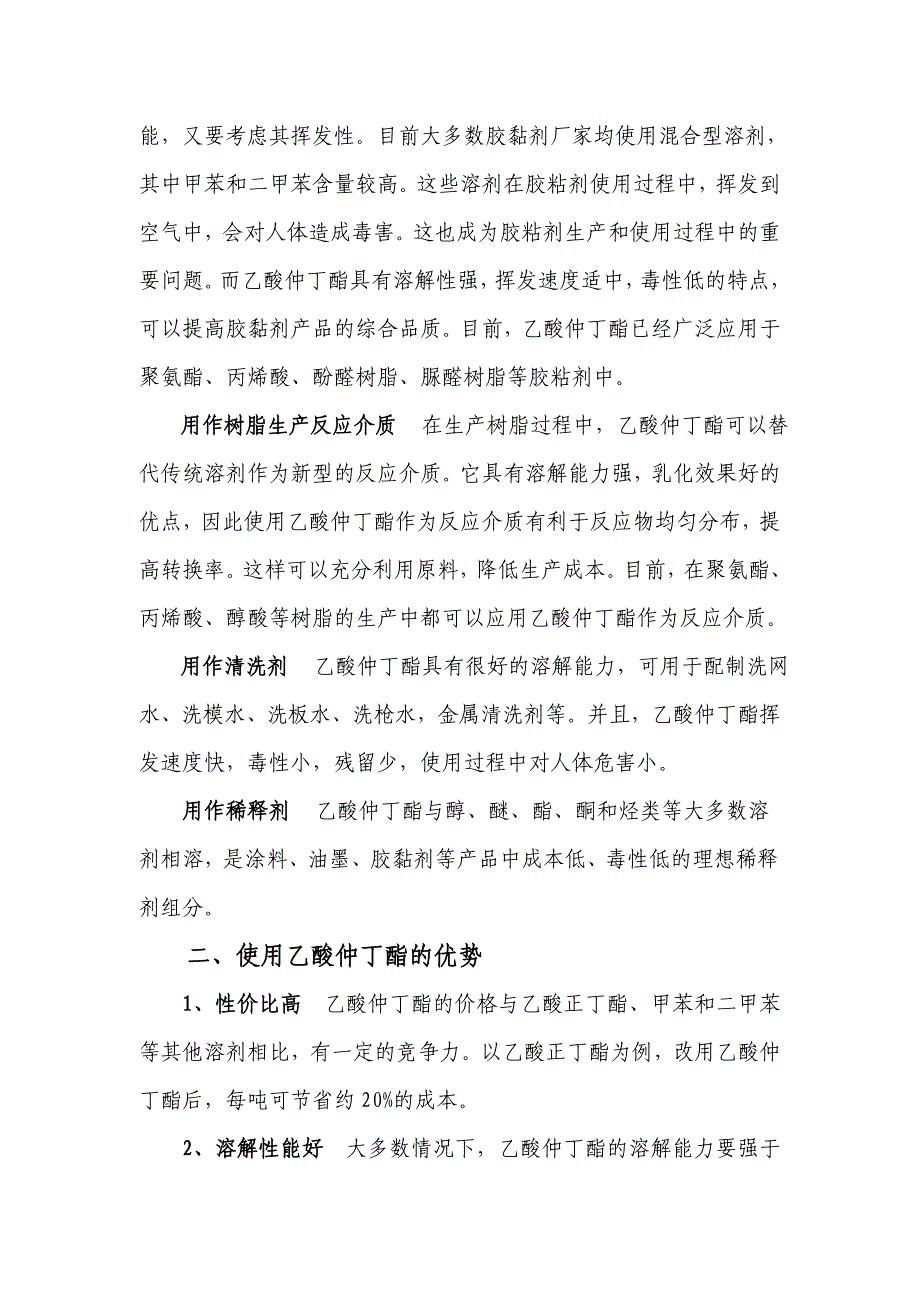 能，又要考虑其挥发性。目前大多数胶黏剂厂家均使用混合型溶剂，
其中甲苯和二甲苯含量较高。这些溶剂在胶粘剂使用过程中，挥发到
空气中，会对人体造成毒害。这也成为胶粘剂生产和使用过程中的重
要问题。而乙酸仲丁酯具有溶解性强，挥发速度适中，毒性低的特点，
可以提高胶黏剂产品的综合品质。目前，乙酸仲丁酯已经广泛应用于
聚氨酯、丙烯酸、酚醛树脂、脲醛树脂等胶粘剂中。
用作树脂生产反应介质 在生产树脂过程中，乙酸仲丁酯可以替
代传统溶剂作为新型的反应介质。它具有溶解能力强，乳化效果好的
优点，因此使用乙酸仲丁酯作为反应介质有利于反应物均匀分布，提
高转换率。这样可以充分利用原料，降低生产成本。目前，在聚氨酯、
丙烯酸、醇酸等树脂的生产中都可以应用乙酸仲丁酯作为反应介质。
用作清洗剂 乙酸仲丁酯具有很好的溶解能力，可用于配制洗网
水、洗模水、洗板水、洗枪水，金属清洗剂等。并且，乙酸仲丁酯挥
发速度快，毒性小，残留少，使用过程中对人体危害小。
用作稀释剂 乙酸仲丁酯与醇、醚、酯、酮和烃类等大多数溶
剂相溶，是涂料、油墨、胶黏剂等产品中成本低、毒性低的理想稀释
剂组分。
二、使用乙酸仲丁酯的优势
1、性价比高 乙酸仲丁酯的价格与乙酸正丁酯、甲苯和二甲苯
等其他溶剂相比，有一定的竞争力。以乙酸正丁酯为例，改用乙酸仲
丁酯后，每吨可节省约 20%的成本。
2、溶解性能好 大多数情况下，乙酸仲丁酯的溶解能力要强于